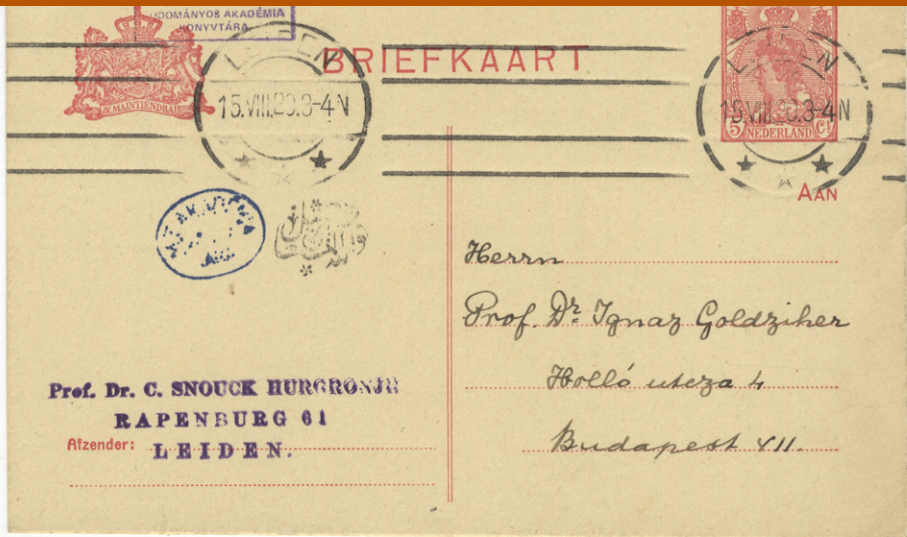 UDOMÁNYOS AKADÉMIA
KÖNYVTÁRA
BRIEFKAART
JE MAINTIENDRAI
15.VIII.20.3-4N
5 Ct
NEDERLAND
AAN
Herrn
Prof. Dr. Ignaz Goldziher
Holló utcza 4
Budapest VII.
Prof. Dr. C. SNOUCK HURGRONJE
RAPENBURG 61
Afzender: LEIDEN.